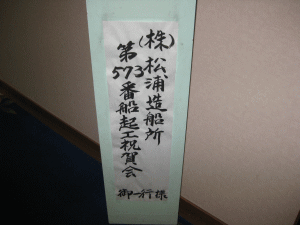 (株)松浦造船所
第573番船起工祝賀会
御一行様